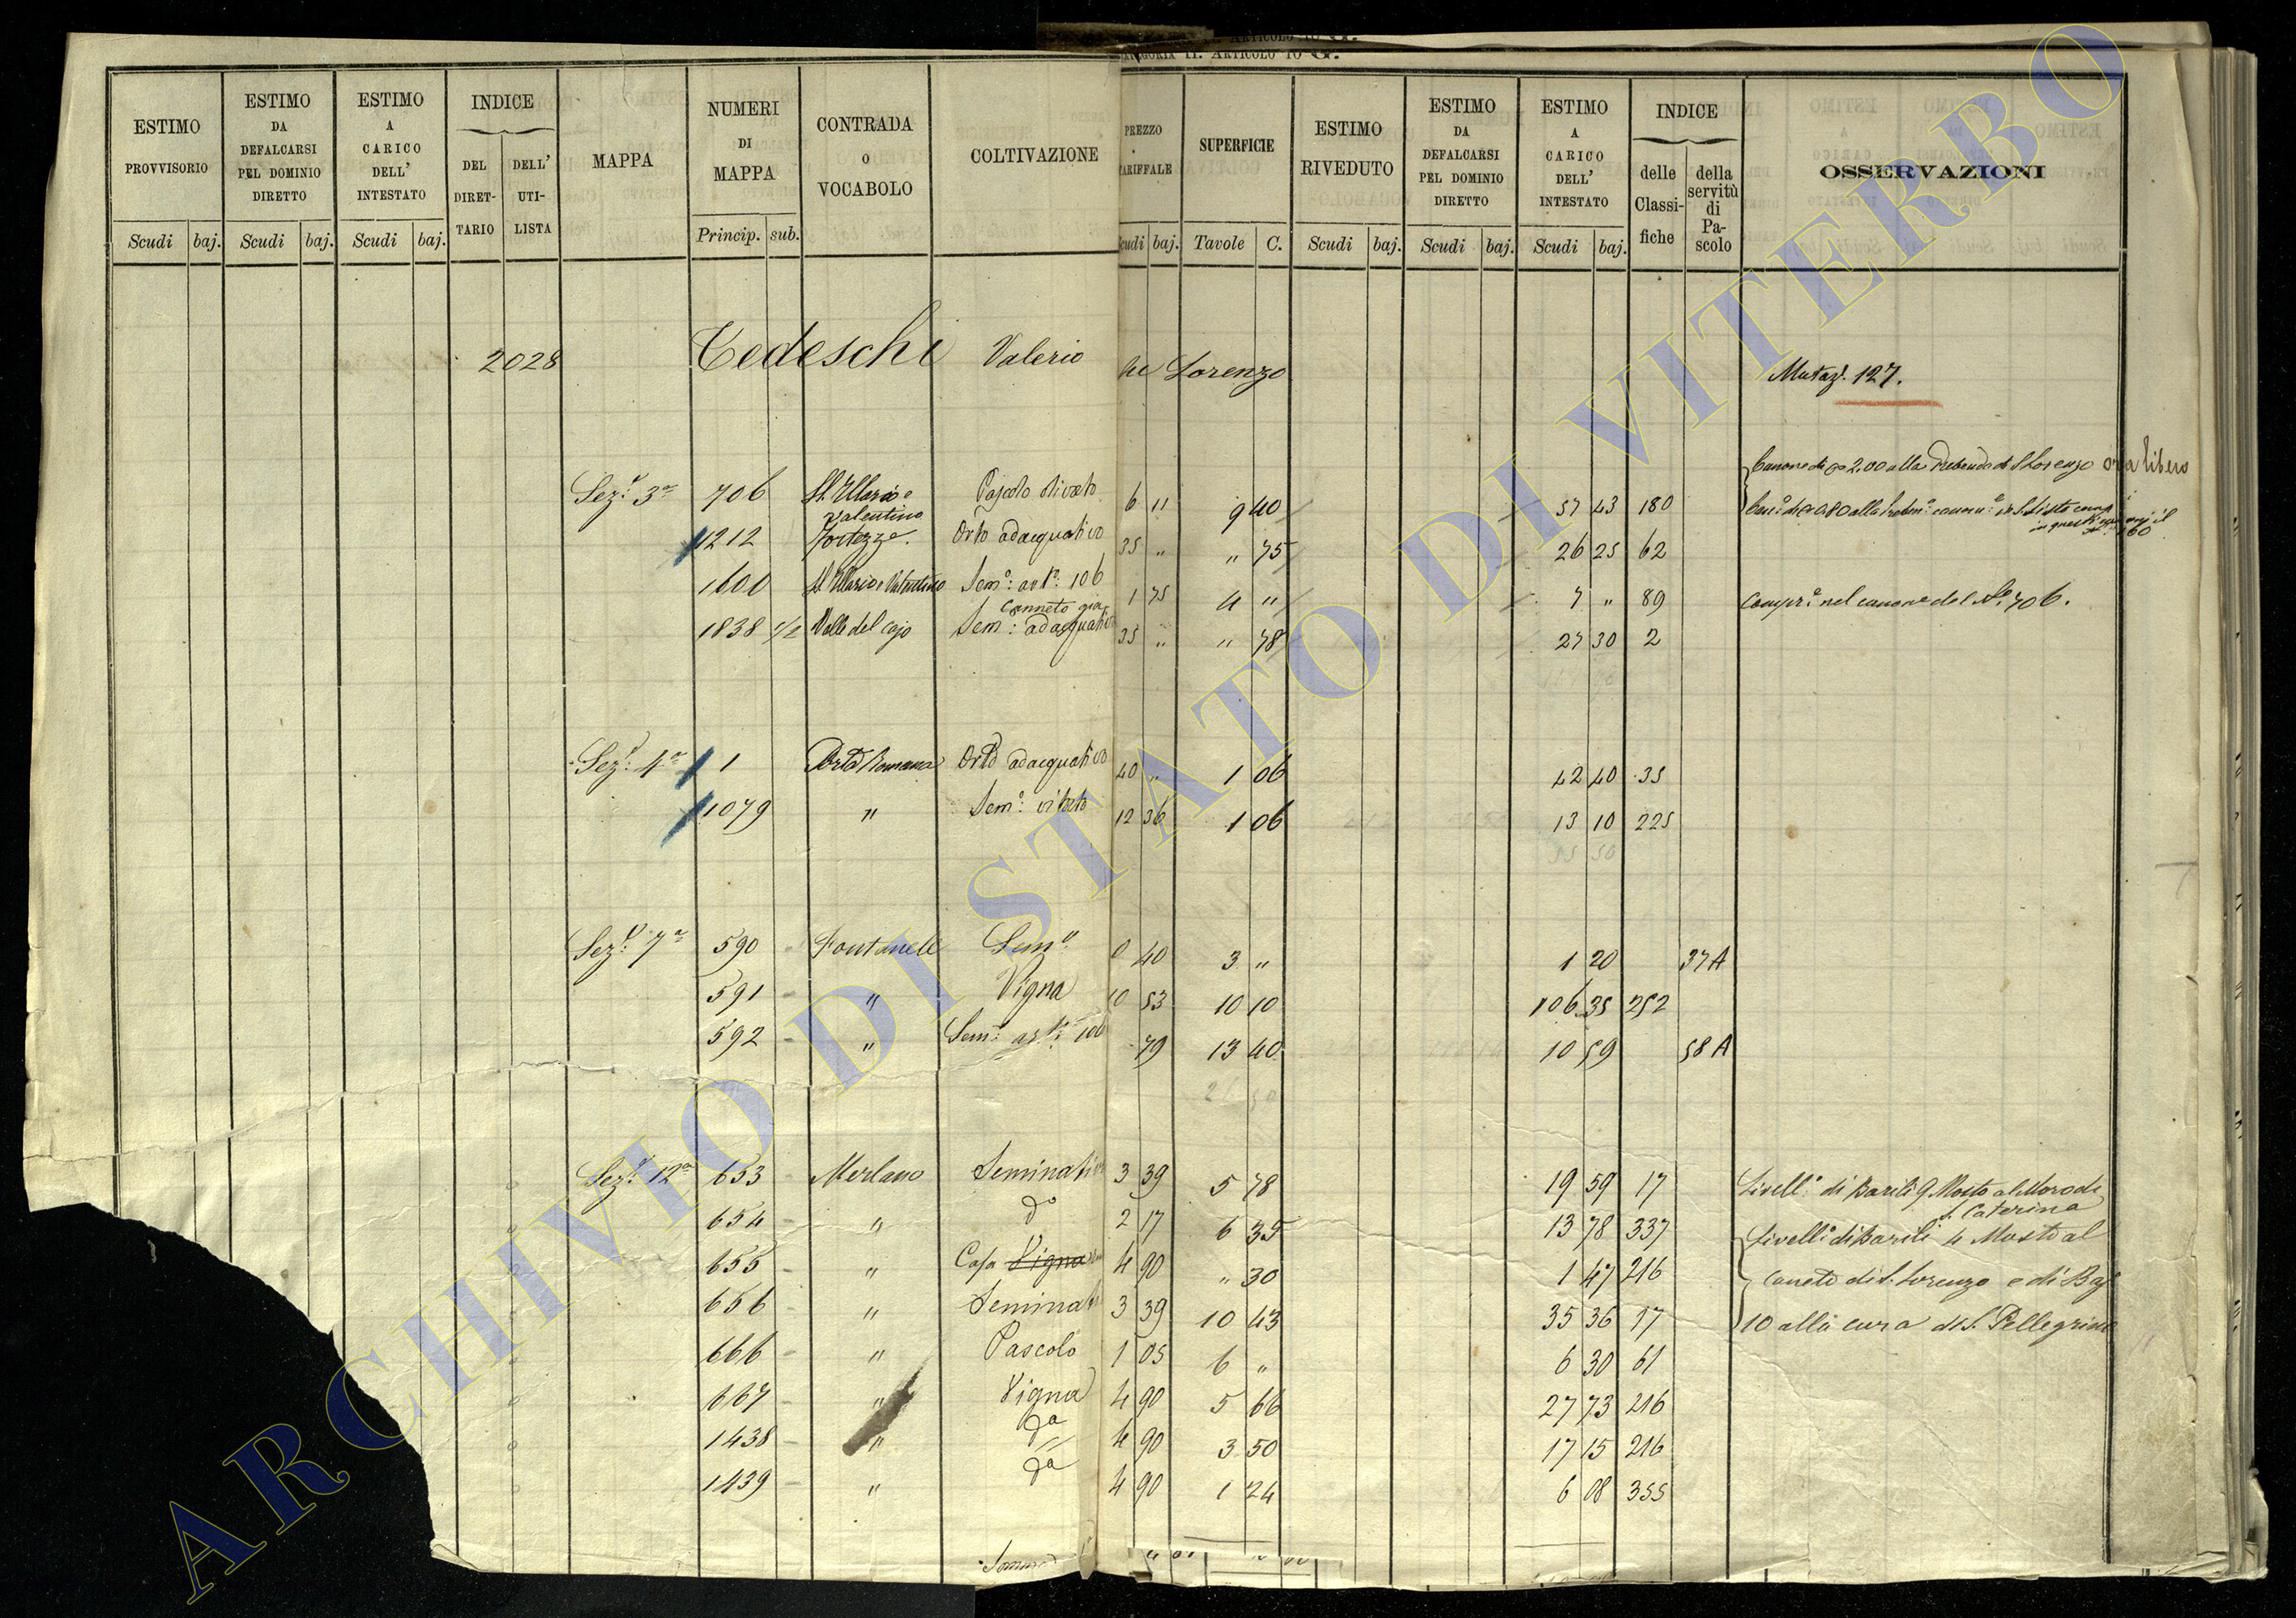 ARTICOLO 10 G.
CATEGORIA II. ARTICOLO 10 G.
ESTIMO PROVVISORIO
Scudi baj.
ESTIMO DA DEFALCARSI PEL DOMINIO DIRETTO
Scudi baj.
ESTIMO A CARICO DELL' INTESTATO
Scudi baj.
INDICE
DEL DIRET-TARIO
DELL' UTI-LISTA
MAPPA
NUMERI DI MAPPA
Princip. sub.
CONTRADA O VOCABOLO
COLTIVAZIONE
PREZZO TARIFFALE
Scudi baj.
SUPERFICIE
Tavole C.
ESTIMO RIVEDUTO
Scudi baj.
ESTIMO DA DEFALCARSI PEL DOMINIO DIRETTO
Scudi baj.
ESTIMO A CARICO DELL' INTESTATO
Scudi baj.
INDICE
delle Classi-fiche
della servitù di Pa-scolo
OSSERVAZIONI
2028 Tedeschi Valerio Lorenzo Mutaz. 127.
Canone di 2,00 alla Prebenda di S Lorenzo ora libero
Sez. 3a 706 S. Illario e Valentino Pascolo olivato 6 11 9 40 57 43 180
1212 Fortezze. Orto adacquativo 35 " " 75 26 25 62
160
1600 S. Illario e Valentino Sem.o art. 106 1 75 4 " 7 " 89 Compr.o nel canone del No. 706.
1838 1/2 Valle del cajo Canneto già Sem.o adacquativo 35 " " 78 27 30 2
Sez. 4a 1 Porta Romana Orto adacquativo 40 " 1 06 42 40 35
1079 " Sem.o vitato 12 36 1 06 13 10 225
55 50
Sez. 7a 590 Fontanele Sem.o 0 40 3 " 1 20 37 A
591 " Vigna 10 53 10 10 106 35 252
592 " Sem.o art. 106 79 13 40 10 59 58 A
26 50
Sez. 12a 653 Merlano Seminativo 3 39 5 78 19 59 17 Livell.o di Barili 9 Mosto al
S. Caterina
654 " do 2 17 6 35 13 78 337 Livell.o di Barili 4 Mosto al
655 " Casa Vigna 4 90 " 30 1 47 216 Caneto di S. Lorenzo e di Baj
656 " Seminati 3 39 10 43 35 36 17 10 alla cura di S. Pellegrino
666 " Pascolo 1 05 6 " 6 30 61
667 " Vigna 4 90 5 66 27 73 216
1438 " da 4 90 3 50 17 15 216
1439 " da 4 90 1 24 6 08 355
Somma
ARCHIVIO DI STATO DI VITERBO